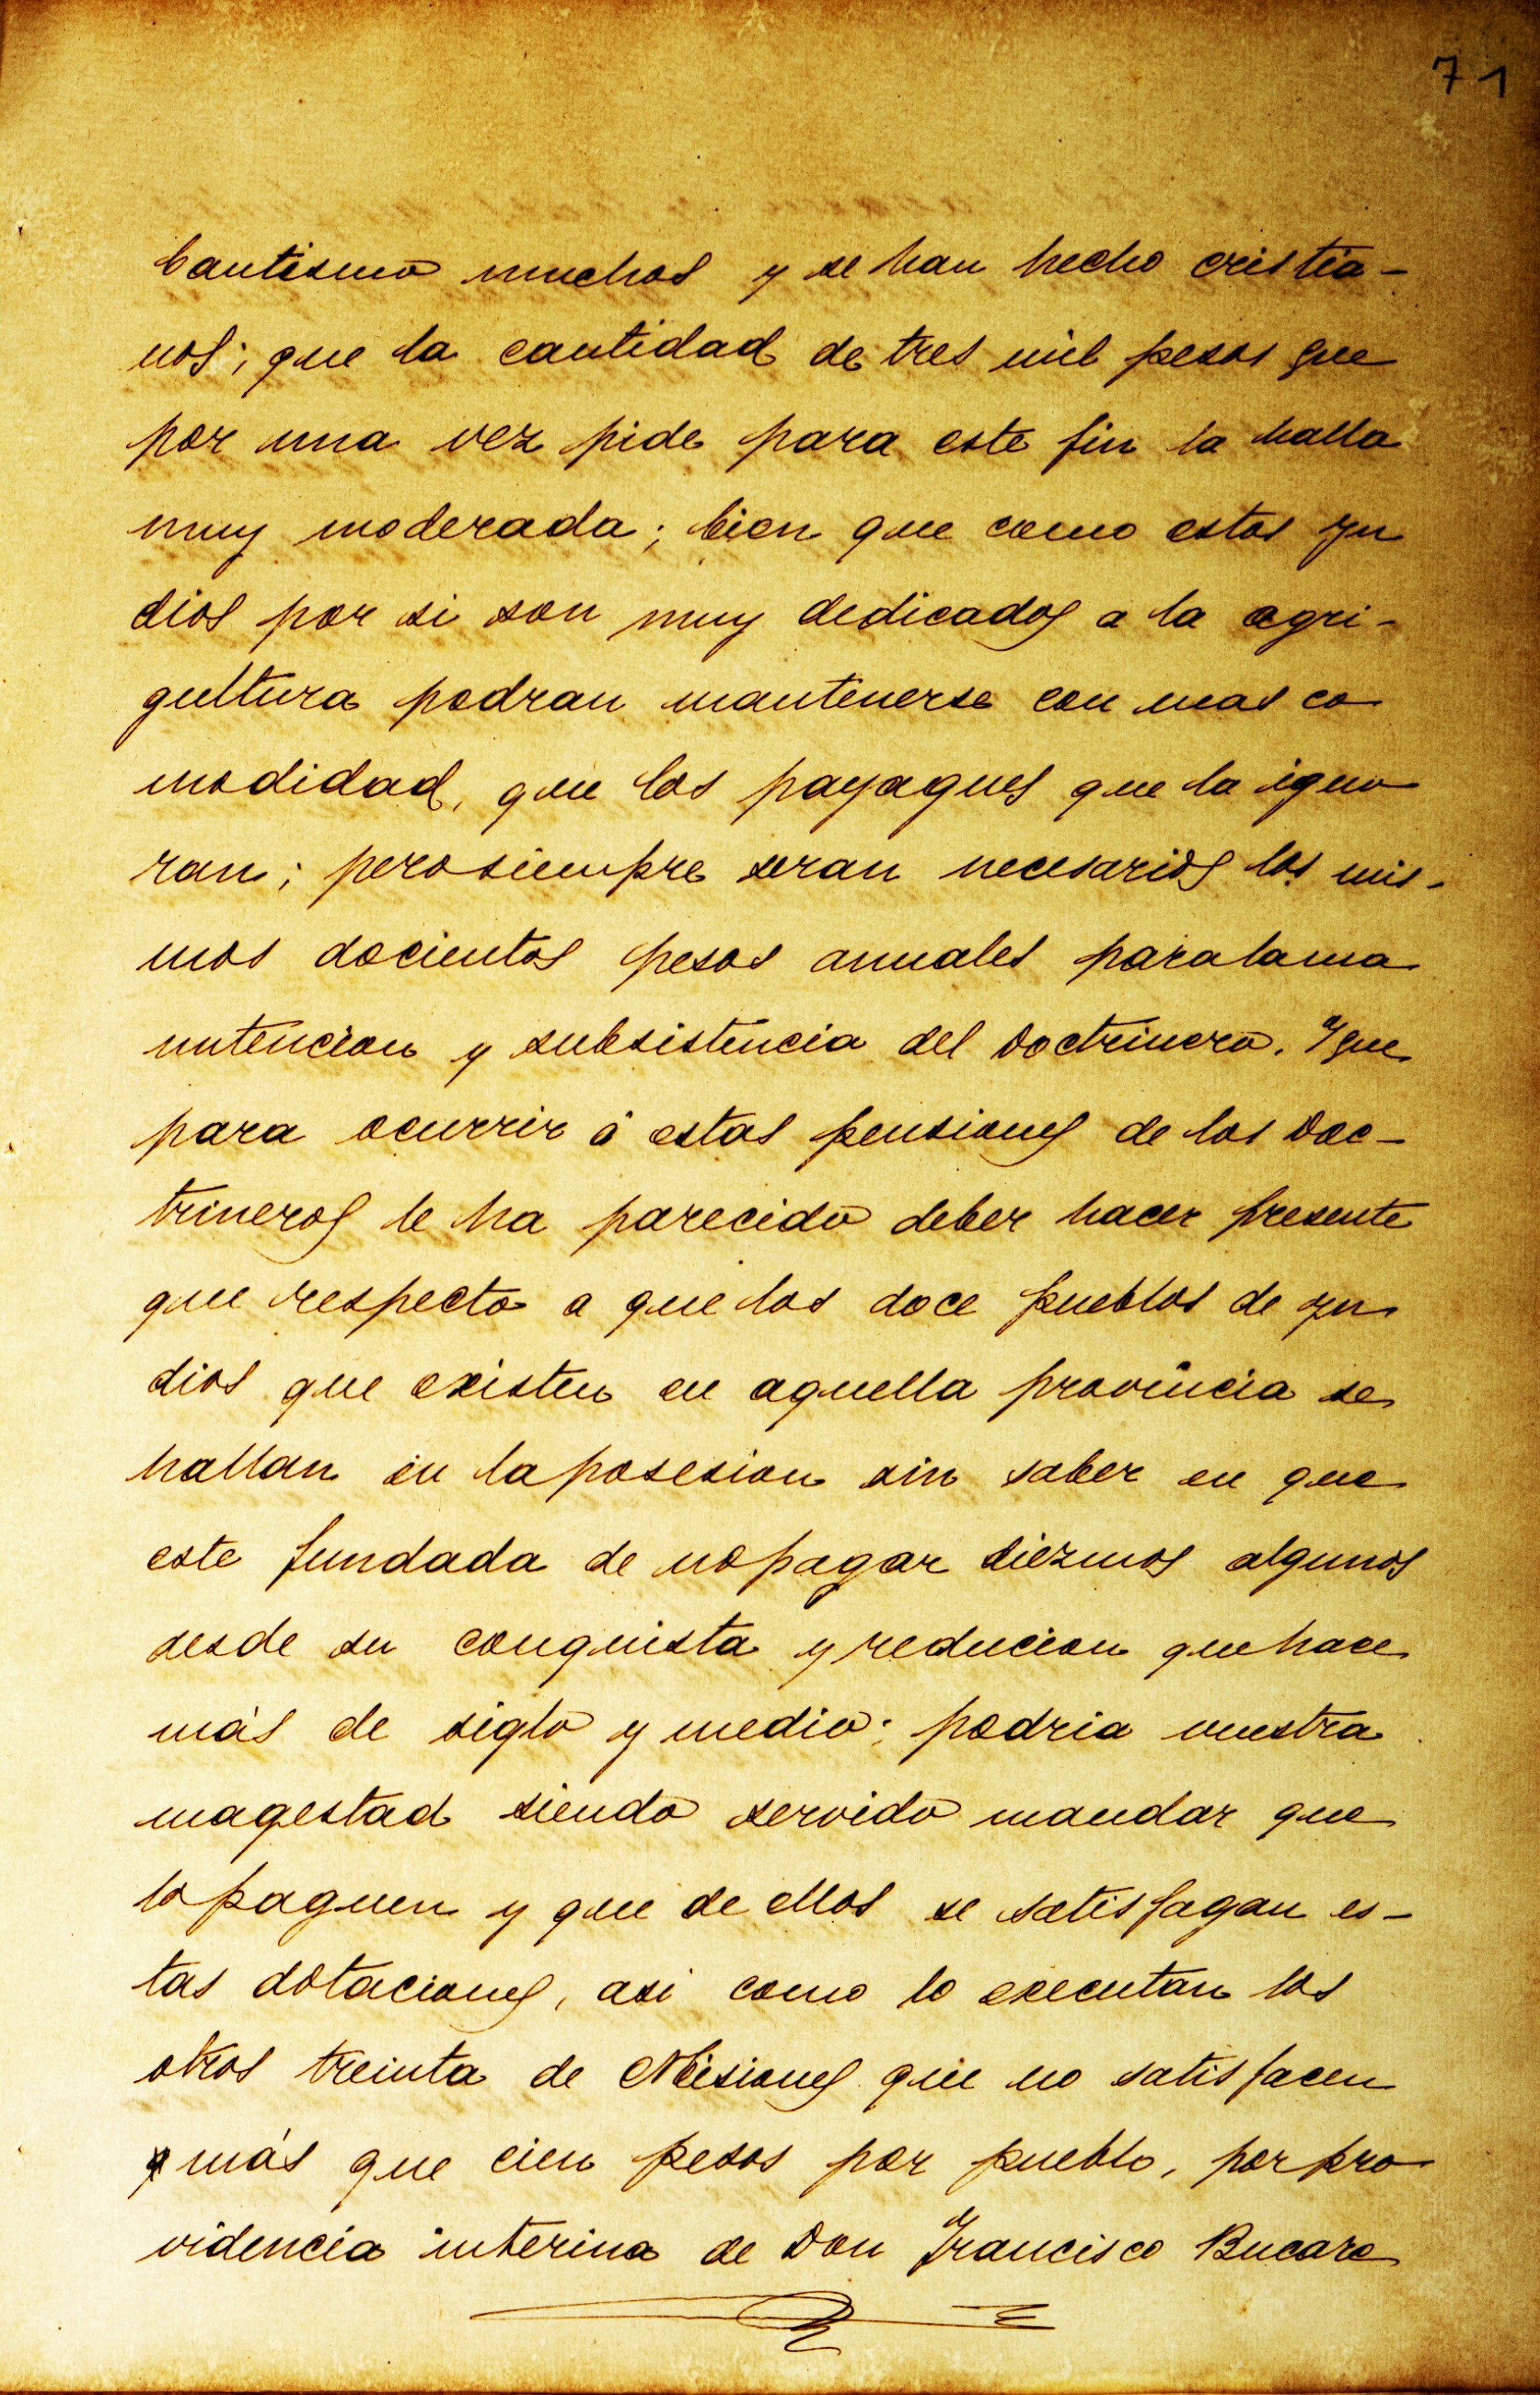 71
bautismo muchos y se han hecho cristia-
nos; que la cantidad de tres mil pesos que
por una vez pide para este fin la halla
muy moderada; bien que como estos yn
dios por si son muy dedicados a la agri-
gultura podran mantenerse con mas co
modidad, que los payagues que la igno
ran; pero siempre seran necesarios los mis-
mos docientos pesos anuales para la ma
nutencion y subsistencia del Doctrinero. Y que
para ocurrir á estas pensiones de los Doc-
trineros le ha parecido deber hacer presente
que respecto a que los doce pueblos de yn
dios que existen en aquella provincia se
hallan en la posesion sin saber en que
este fundada de no pagar diezmos algunos
desde su conquista y reducion que hace
más de siglo y medio; podria vuestra
magestad siendo servido mandar que
lo paguen y que de ellos se satisfagan es-
tas dotaciones, asi como lo executan los
otros treinta de Misiones que no satisfacen
más que cien pesos por pueblo, por pro
videncia interina de Don Francisco Bucare